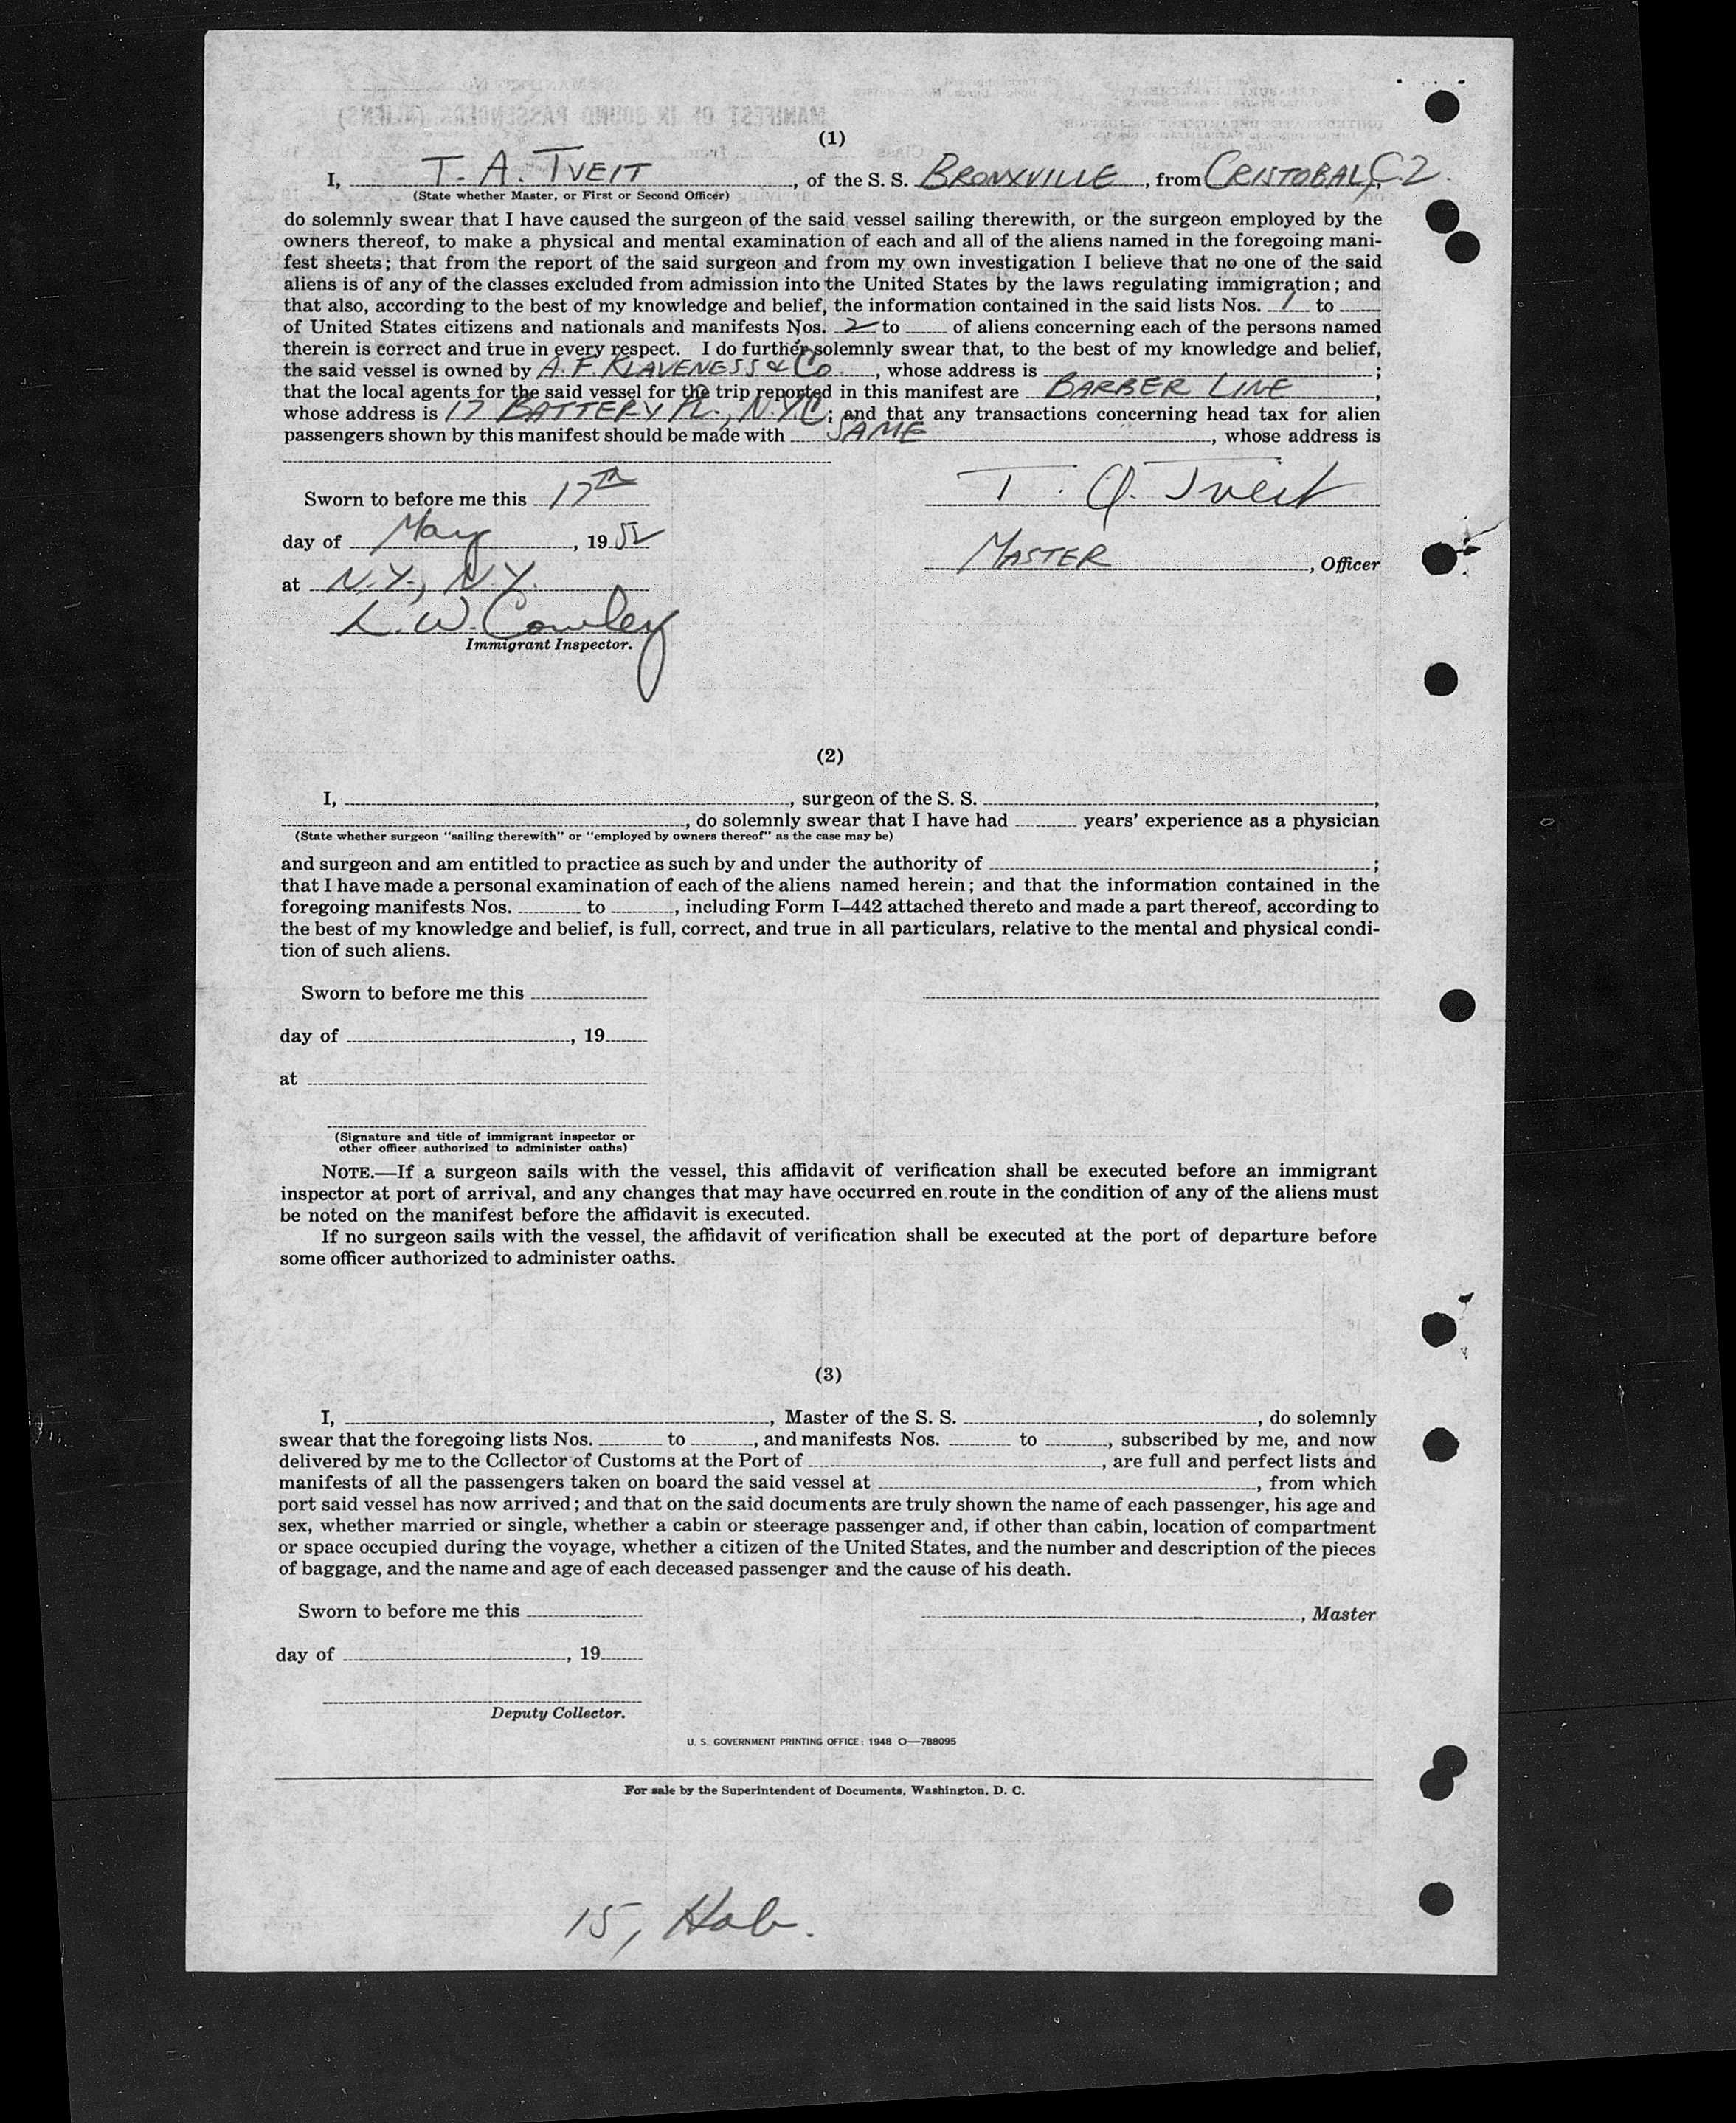 (1)
I, T. A. TVEIT, of the S. S. BRONXVILLE, from CRISTOBAL, C.Z.
(State whether Master, or First or Second Officer)
do solemnly swear that I have caused the surgeon of the said vessel sailing therewith, or the surgeon employed by the
owners thereof, to make a physical and mental examination of each and all of the aliens named in the foregoing mani-
fest sheets; that from the report of the said surgeon and from my own investigation I believe that no one of the said
aliens is of any of the classes excluded from admission into the United States by the laws regulating immigration; and
that also, according to the best of my knowledge and belief, the information contained in the said lists Nos. 1 to
of United States citizens and nationals and manifests Nos. 2 to of aliens concerning each of the persons named
therein is correct and true in every respect. I do further solemnly swear that, to the best of my knowledge and belief,
the said vessel is owned by A. F. KLAVENESS & Co., whose address is ;
that the local agents for the said vessel for the trip reported in this manifest are BARBER LINE,
whose address is 17 BATTERY PL., N.Y.C; and that any transactions concerning head tax for alien
passengers shown by this manifest should be made with SAME, whose address is
Sworn to before me this 17th
T. A. Tveit
day of May, 1952
MASTER, Officer
at N.Y., N.Y.
L. W. Cowley
Immigrant Inspector.
(2)
I, , surgeon of the S. S. ,
, do solemnly swear that I have had years' experience as a physician
(State whether surgeon "sailing therewith" or "employed by owners thereof" as the case may be)
and surgeon and am entitled to practice as such by and under the authority of ;
that I have made a personal examination of each of the aliens named herein; and that the information contained in the
foregoing manifests Nos. to , including Form I–442 attached thereto and made a part thereof, according to
the best of my knowledge and belief, is full, correct, and true in all particulars, relative to the mental and physical condi-
tion of such aliens.
Sworn to before me this
day of , 19
at
(Signature and title of immigrant inspector or
other officer authorized to administer oaths)
NOTE.—If a surgeon sails with the vessel, this affidavit of verification shall be executed before an immigrant
inspector at port of arrival, and any changes that may have occurred en route in the condition of any of the aliens must
be noted on the manifest before the affidavit is executed.
If no surgeon sails with the vessel, the affidavit of verification shall be executed at the port of departure before
some officer authorized to administer oaths.
(3)
I, , Master of the S. S. , do solemnly
swear that the foregoing lists Nos. to , and manifests Nos. to , subscribed by me, and now
delivered by me to the Collector of Customs at the Port of , are full and perfect lists and
manifests of all the passengers taken on board the said vessel at , from which
port said vessel has now arrived; and that on the said documents are truly shown the name of each passenger, his age and
sex, whether married or single, whether a cabin or steerage passenger and, if other than cabin, location of compartment
or space occupied during the voyage, whether a citizen of the United States, and the number and description of the pieces
of baggage, and the name and age of each deceased passenger and the cause of his death.
Sworn to before me this
, Master
day of , 19
Deputy Collector.
U. S. GOVERNMENT PRINTING OFFICE: 1948 O—788095
For sale by the Superintendent of Documents, Washington, D. C.
15, Hob.